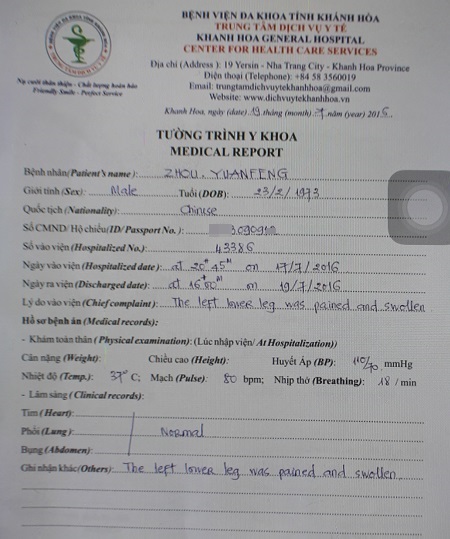 BỆNH VIỆN ĐA KHOA TỈNH KHÁNH HÒA
TRUNG TÂM DỊCH VỤ Y TẾ
KHANH HOA GENERAL HOSPITAL
CENTER FOR HEALTH CARE SERVICES
Nụ cười thân thiện - Chất lượng hoàn hảo
Friendly Smile - Perfect Service
Địa chỉ (Address): 19 Yersin - Nha Trang City - Khanh Hoa Province
Điện thoại (Telephone): +84 58 3560019
Email: trungtamdichvuytekhanhhoa@gmail.com
Website: www.dichvuytekhanhhoa.vn
Khanh Hoa, ngày (date) 19 tháng (month) 7 năm (year) 2016
TƯỜNG TRÌNH Y KHOA
MEDICAL REPORT
Bệnh nhân (Patient's name): ZHOU. YUANFENG
Giới tính (Sex): Male Tuổi (DOB): 23/2/1973
Quốc tịch (Nationality): Chinese
Số CMND/ Hộ chiếu(ID/ Passport No.):
Số vào viện (Hospitalized No.): 43386
Ngày vào viện (Hospitalized date): at 20h 45M on 17/7/2016
Ngày ra viện (Discharged date): at 16h 00M on 19/7/2016
Lý do vào viện (Chief complaint): The left lower leg was pained and swollen
Hồ sơ bệnh án (Medical records):
- Khám toàn thân (Physical examination): (Lúc nhập viện/ At Hospitalization))
Cân nặng (Weight): Chiều cao (Height): Huyết Áp (BP): 110/70 mmHg
Nhiệt độ (Temp.): 37° C; Mạch (Pulse): 80 bpm; Nhịp thở (Breathing): 18 / min
- Lâm sàng (Clinical records):
Tim (Heart):
Phổi (Lung): Normal
Bụng (Abdomen):
Ghi nhận khác(Others): The left lower leg was pained and swollen